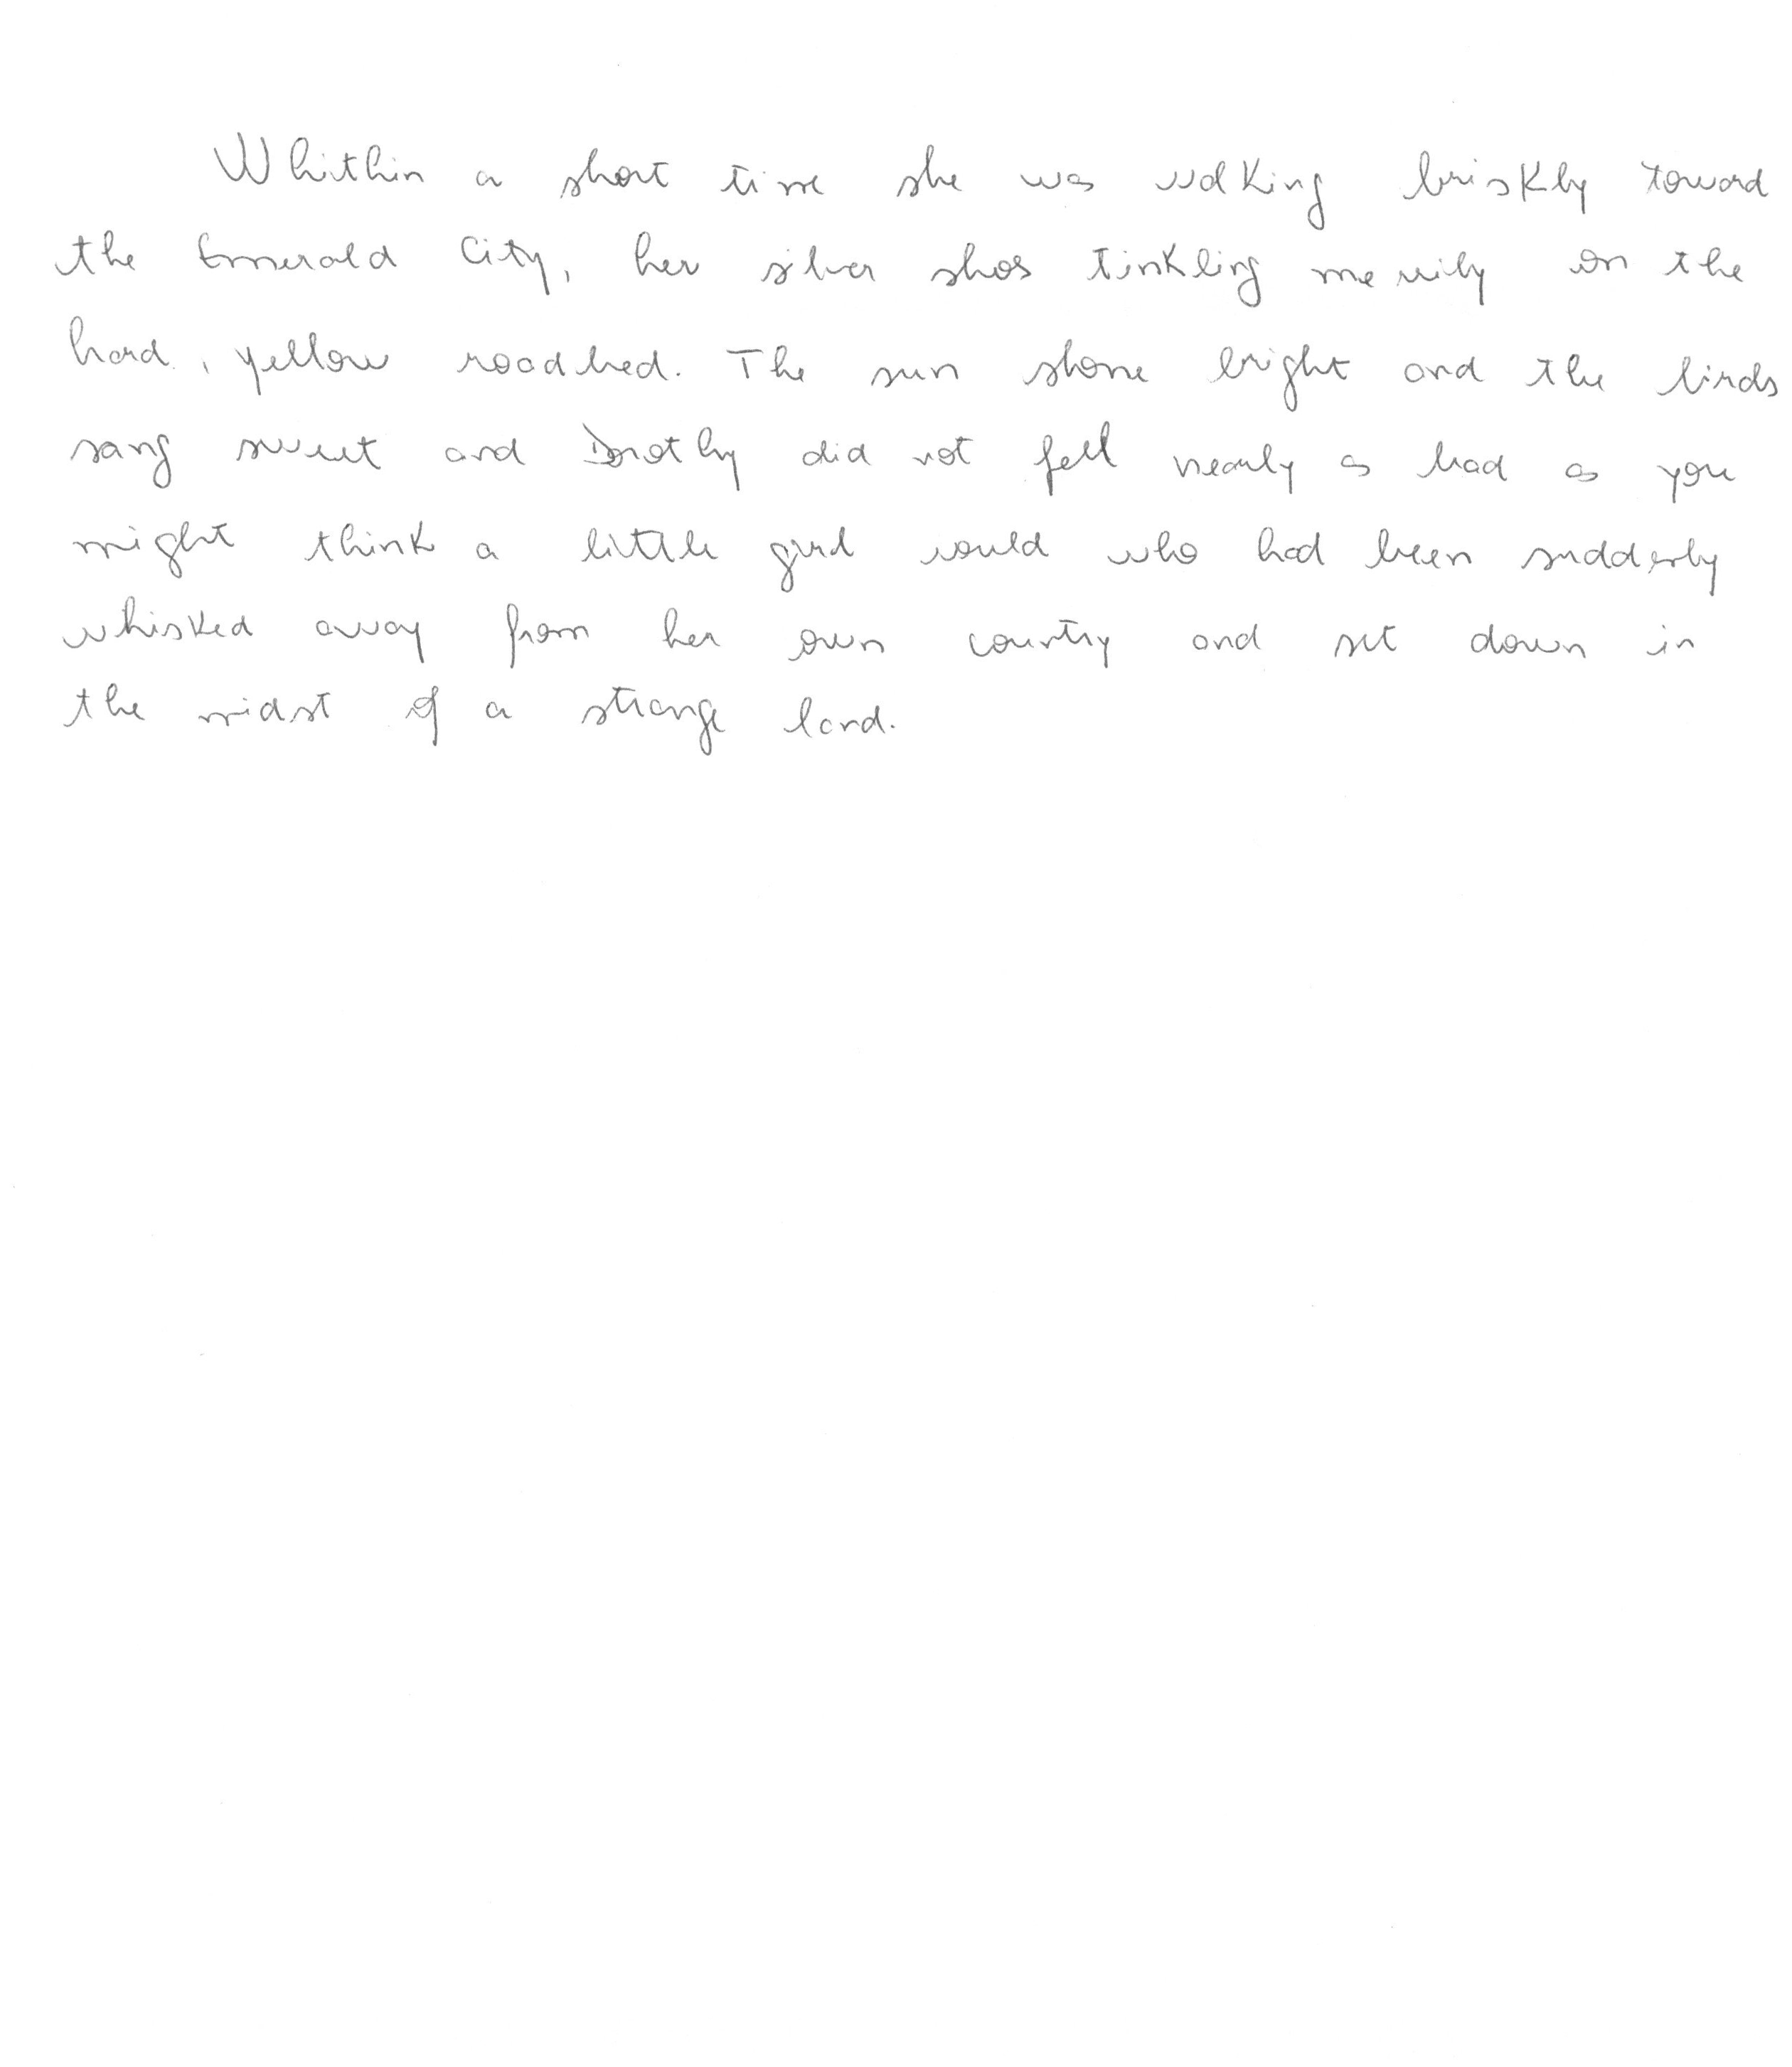 Whithin a short time she was walking briskly toward
the Emerald City, her silver shoes tinkling merrily on the
hard, yellow roadbed. The sun shone bright and the birds
sang sweet and Dorothy did not fell nearly as bad as you
might think a little girl would who had been suddenly
whisked away from her own country and set down in
the midst of a strange land.